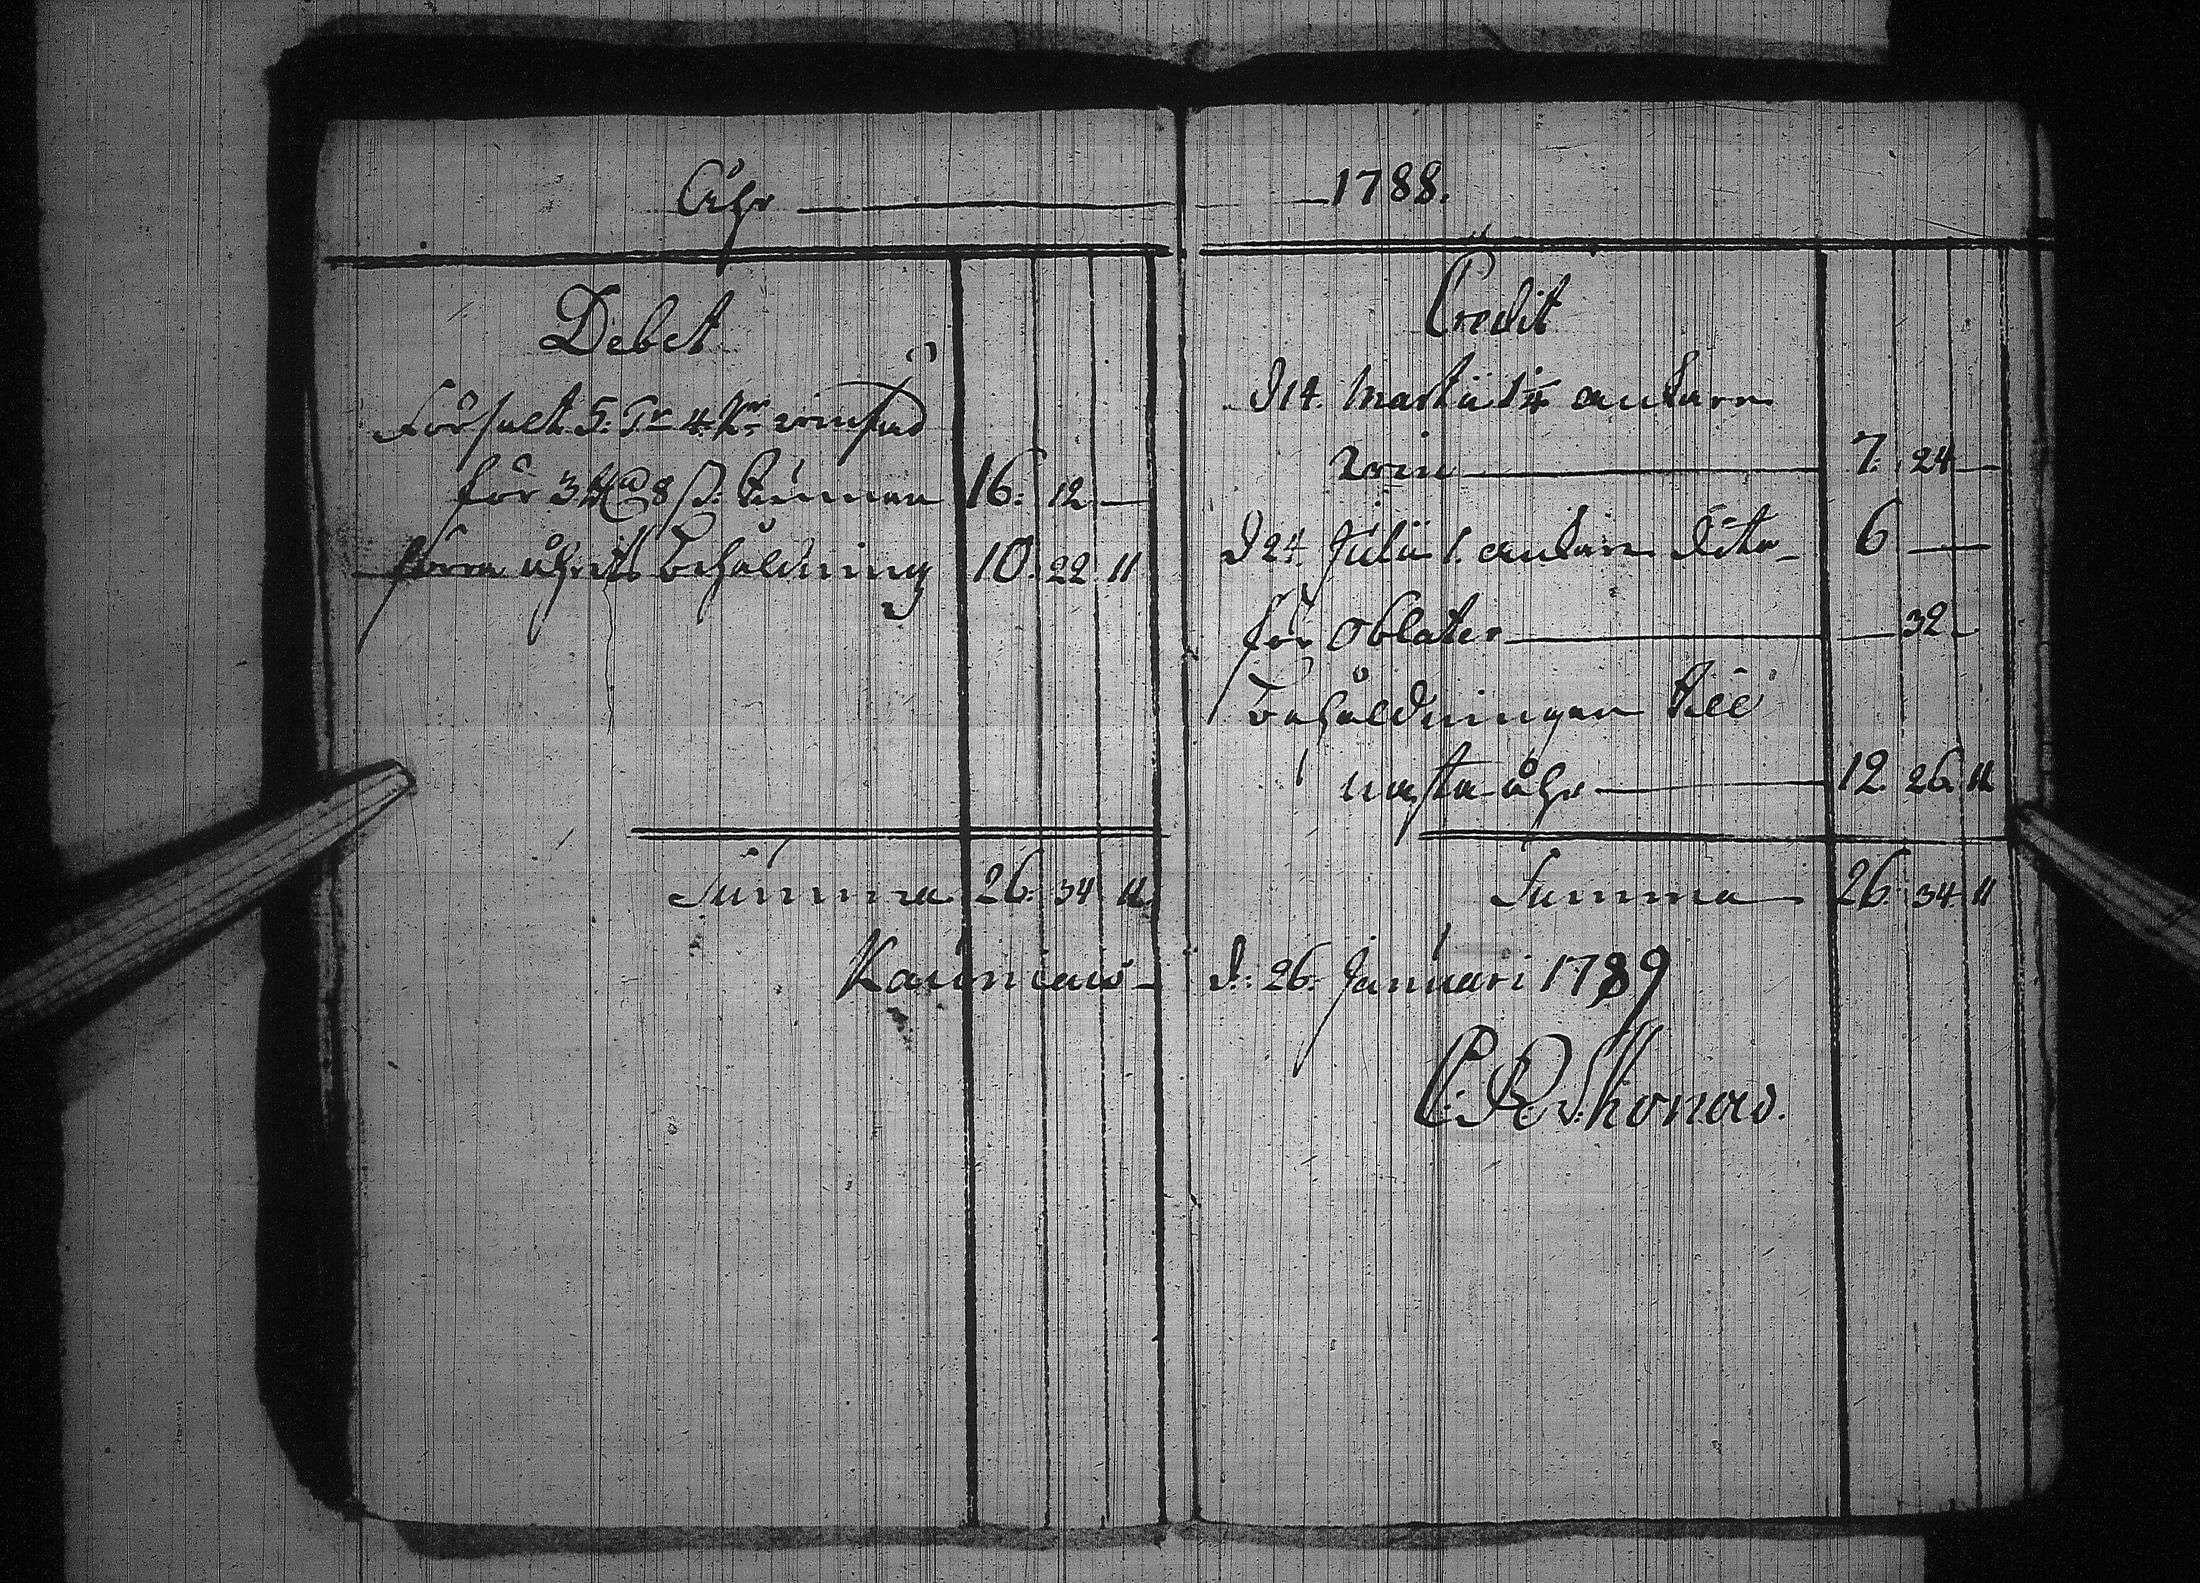 Åhr — 1788.
Debet
Försålt 5. Tr 4. Kr vinsäd
för 3 Rd 8 ß. tunnan 16. 12 —
förra åhrets behåldning 10. 22 11
Summa 26. 34 11.
Kauniais —
Credit
d 14. Martii 1¼ ankare
vin — 7. 24 —
d 24. Julii 1. ankare dito — 6 —
för oblater — — 32 —
behåldningen till
nästa åhr — 12. 26. 11
Summa 26. 34 11
d: 26. Januari 1789
C: R